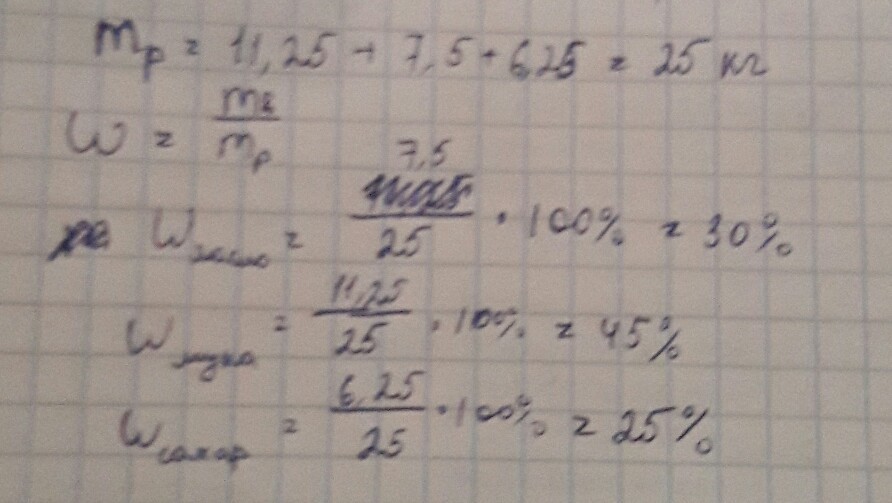 mр = 11,25 + 7,5 + 6,25 = 25 кг
W = mв / mр
Wмасло = 7,5 / 25 · 100% = 30%
Wмука = 11,25 / 25 · 100% = 45%
Wсахар = 6,25 / 25 · 100% = 25%